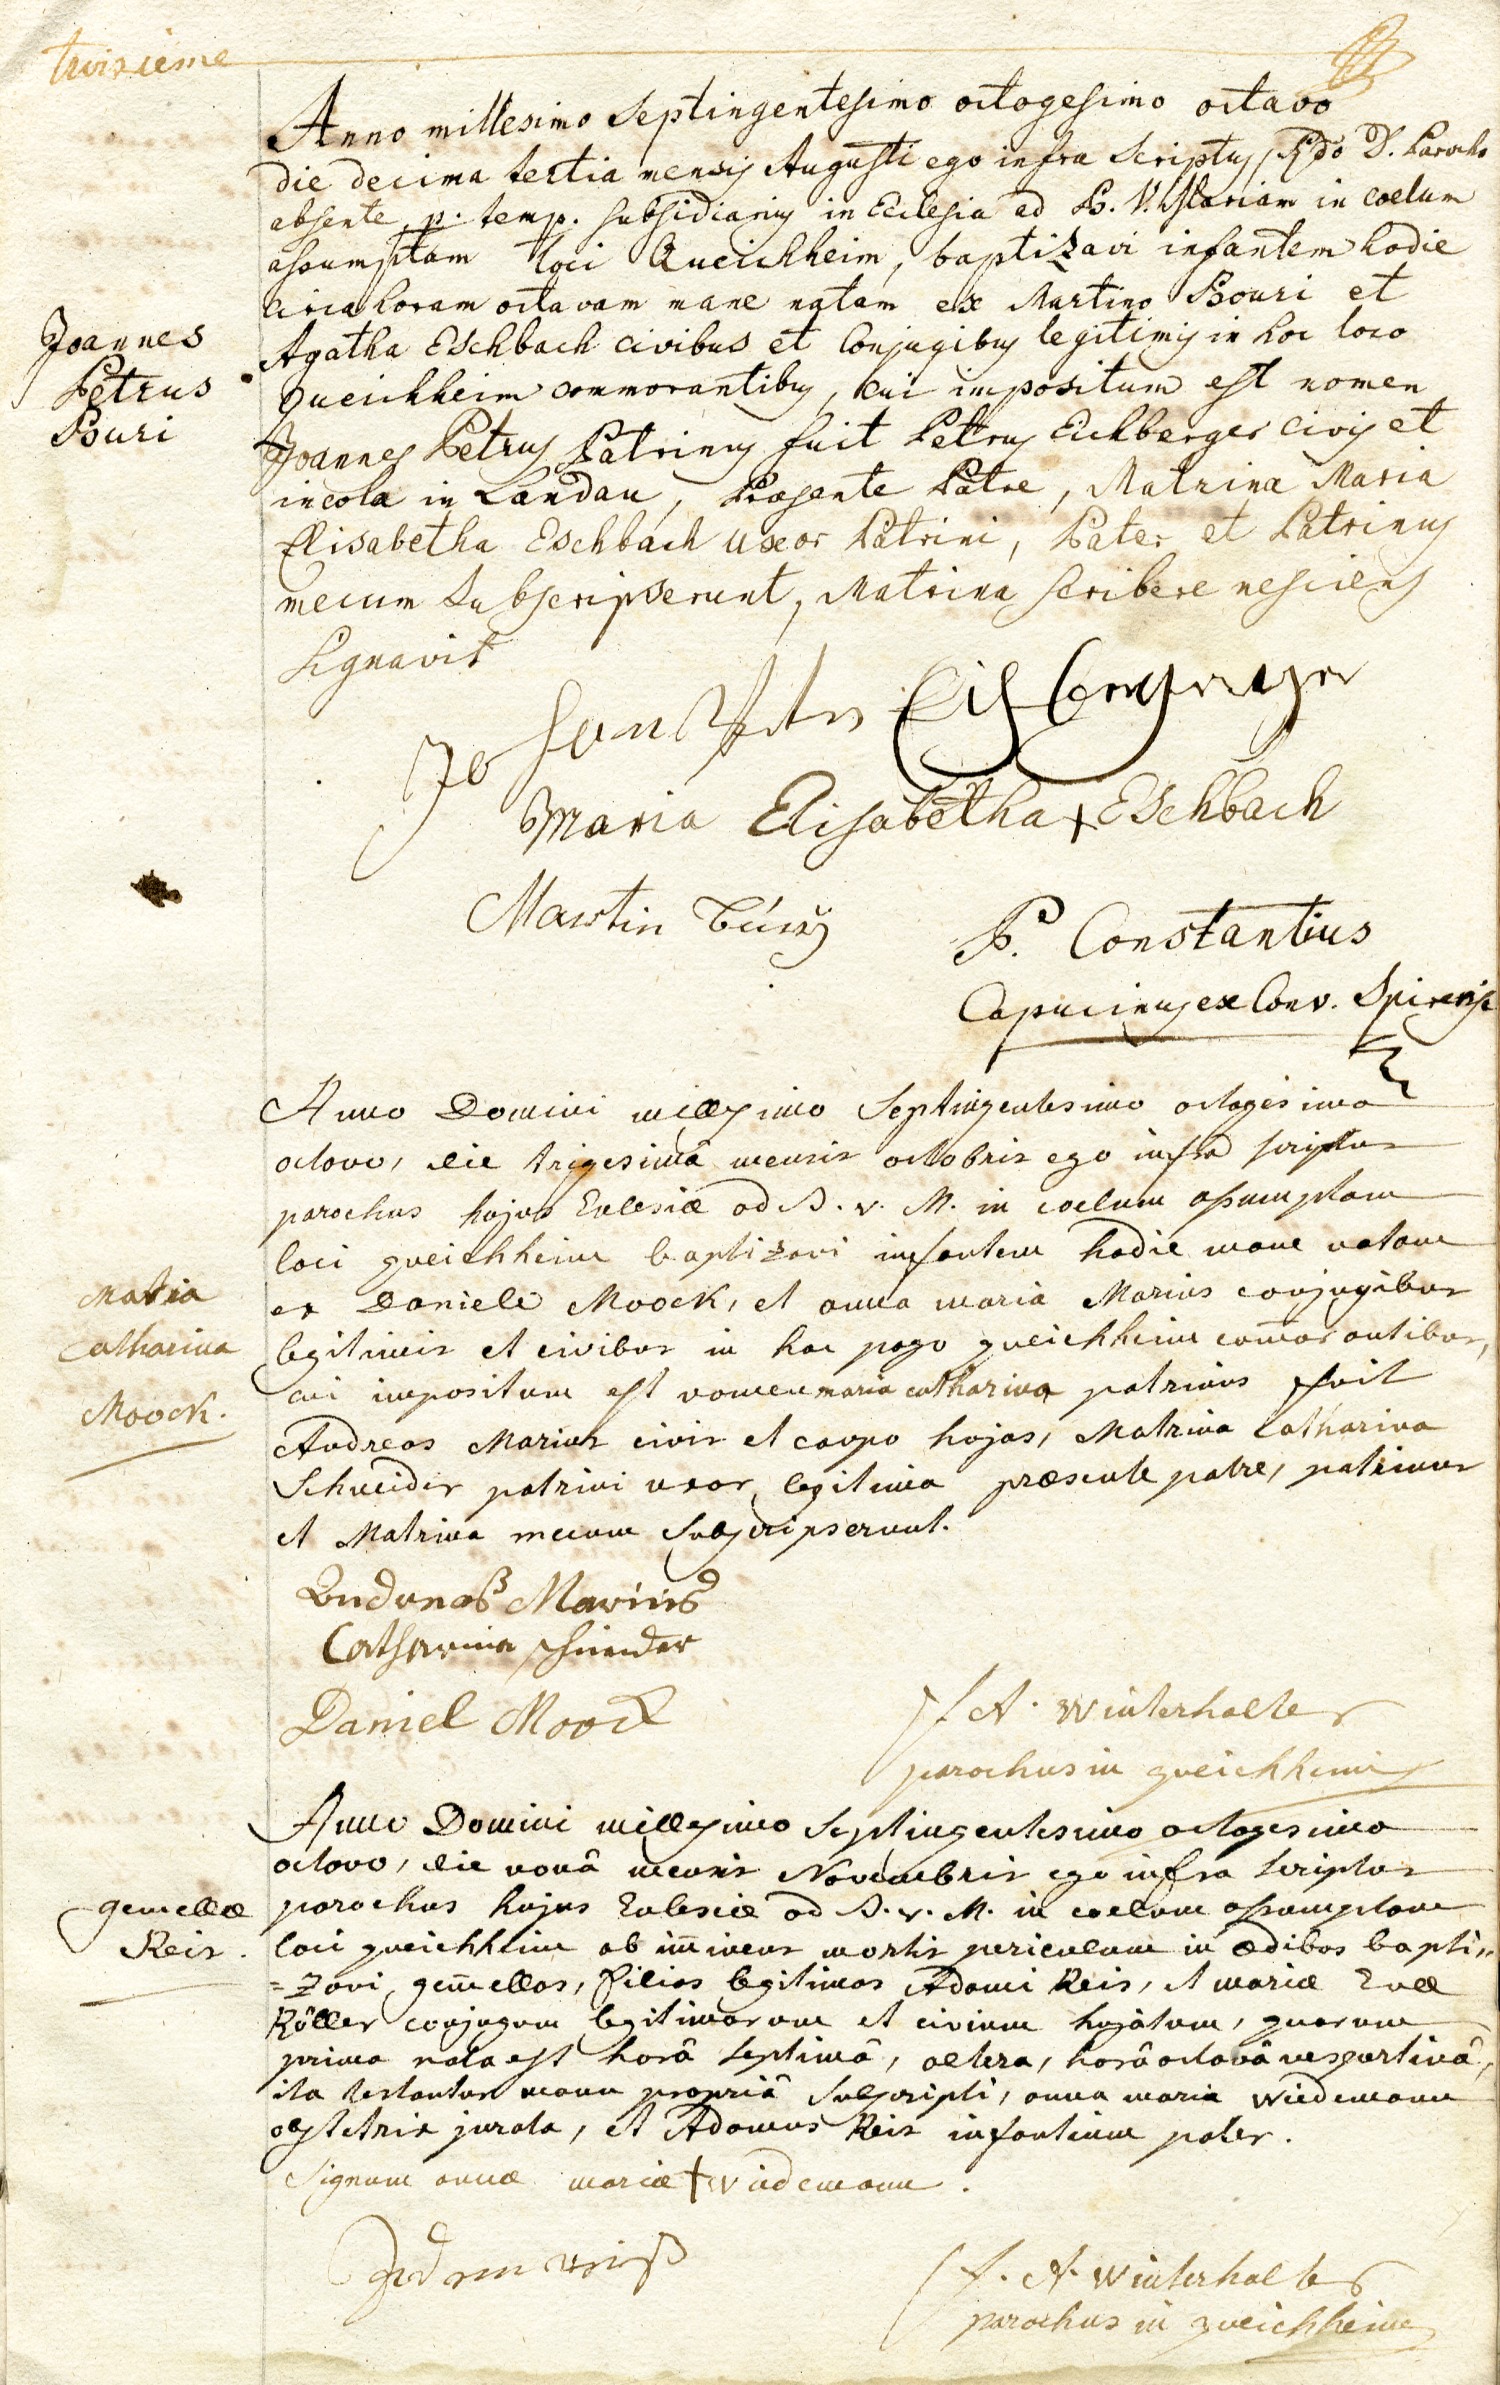 troisieme
Anno millesimo Septingentesimo octogesimo octavo
die decima tertia mensis Augusti ego infra Scriptus, Rdo D. Parocho
absente p. temp. subsidiarius in Ecclesia ad B. V. Mariam in coelum
assumptam loci Queichheim, baptizavi infantem hodie
circa horam octavam mane natam ex Martino Bouri et
Joannes
Petrus
Bouri
Agatha Eschbach civibus et Conjugibus legitimis in hoc loco
Queichheim commorantibus, cui impositum est nomen
Joannes Petrus Patrinus fuit Petrus Eichberger civis et
incola in Landau, Praesente Patre, Matrina Maria
Elisabetha Eschbach uxor Patrini, Pater et Patrinus
mecum subscripserunt, Matrina scribere nesciens
signavit
Johan Peter
Maria Elisabetha + Eschbach
Martin
P. Constantius
Capucinus ex Conv. Spirensi
Anno Domini millesimo Septingentesimo octogesimo
octavo, die trigesimâ mensis octobris ego infra scriptus
parochus hujus Eclesiæ ad B. v. M. in coelum assumptam
loci queichheim baptizavi infantem hodie mane natam
Maria
Catharina
Moock.
ex Daniele Moock, et anna maria Marius conjugibus
legitimis et civibus in hac pago queichheim com̄orantibus,
cui impositum est nomen maria catharina patrinus fuit
Andreas Marius civis et caupo hujas, Matrina Catharina
Schneider patrini uxor legitima præsente patre, patrinus
et Matrina mecum subscripserunt.
Andreas Marius
Catharina Schneider
Daniel Moock
f. A. Winterhalter
parochus in queichheim
Anno Domini millesimo Septingentesimo octogesimo
octavo, die nonâ mensis Novembris ego infra scriptus
gemellæ
Reis.
parochus hujus Eclesiæ ad B. v. M. in coelum assumptam
loci queichheim ob im̄inens mortis periculum in ædibus bapti=
=zavi gem̄ellas, filias legitimas Adami Reis, et mariæ Evæ
Röller conjugum legitimorum et civium hujatum, quarum
prima nata est horâ septimâ, altera, horâ octavâ vespertinâ,
ita testantur manu propriâ subscripti, anna maria Wiedemann
obstetrix jurata, et Adamus Reis infantium pater.
Signum annæ mariæ + Wiedemann.
f. A. Winterhalter
parochus in queichheim